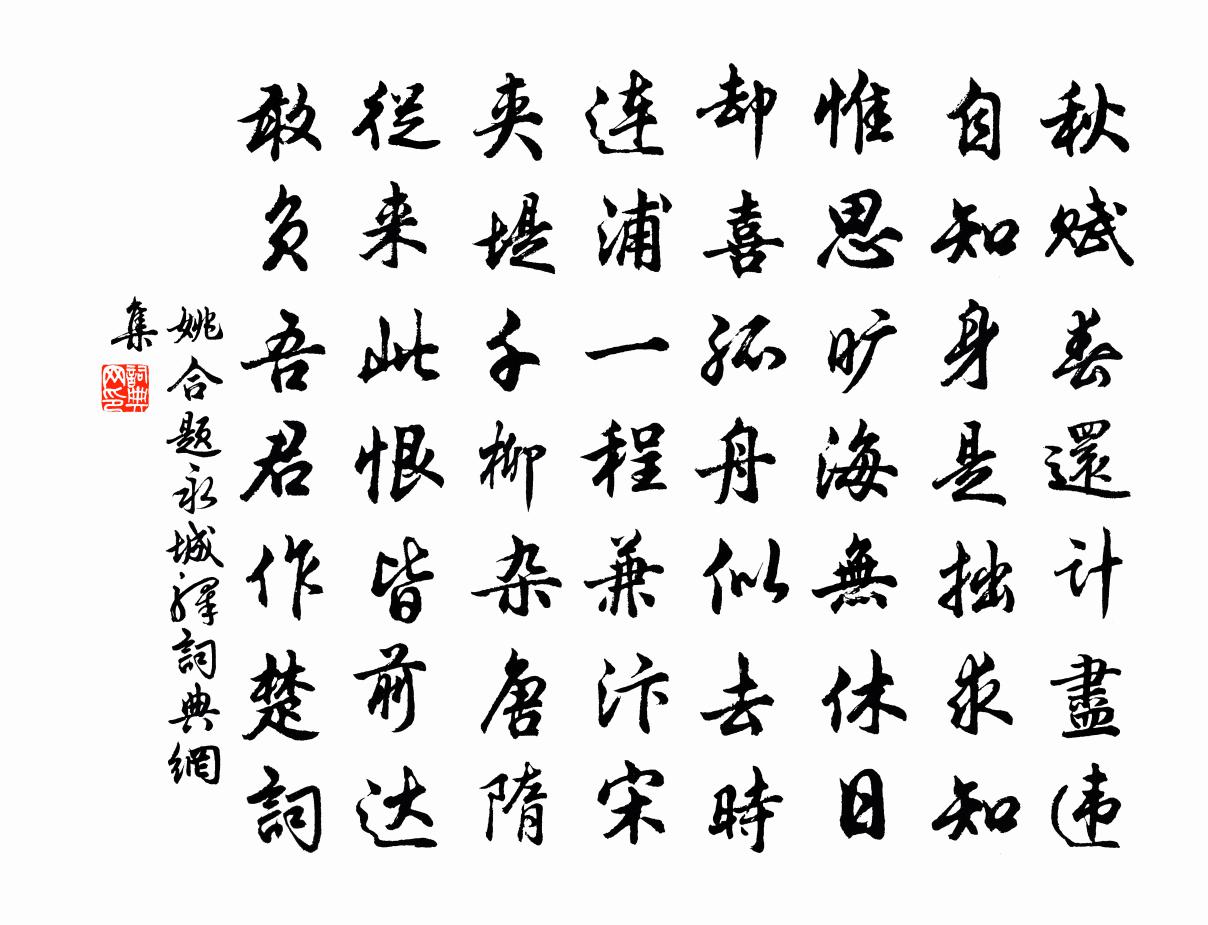 秋赋春還计盡违
自知身是拙求知
惟思旷海無休日
却喜孤舟似去時
连浦一程兼汴宋
夹堤千柳杂唐隋
從来此恨皆前达
敢负吾君作楚詞
姚合题永城驛詞典網
集
詞典网印